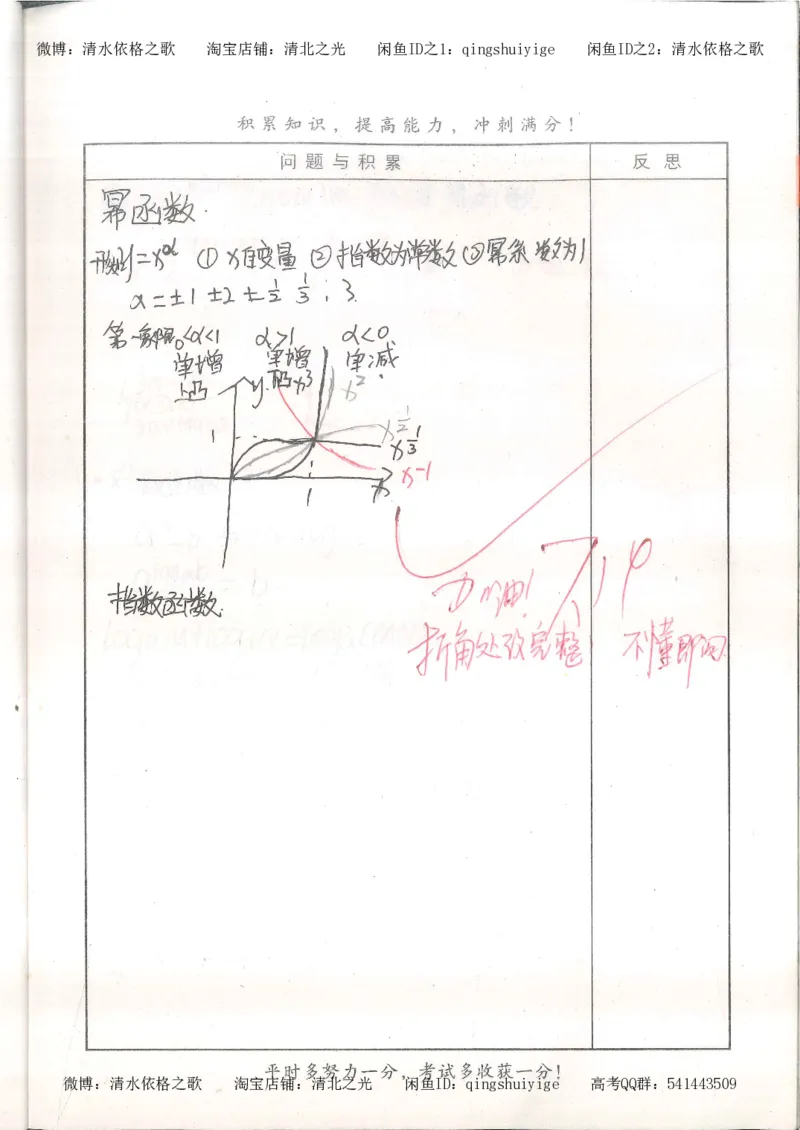 微博：清水依格之歌 淘宝店铺：清北之光 闲鱼ID之1：qingshuiyige 闲鱼ID之2：清水依格之歌
积累知识，提高能力，冲刺满分！
问题与积累 反思
幂函数.
形如y=x^α ①x自变量 ②指数为常数 ③幂系数为1
α=±1 ±2 ±1/2 1/3 ; 3.
第一象限 0<α<1 α>1 α<0
单增 单增 单减.
上凸 y 下凸 x³ x²
1 x^1/2
x^1/3
x-1
1 x
指数函数.
加油!
折角处改完整! 不懂即问.
平时多努力一分，考试多收获一分！
微博：清水依格之歌 淘宝店铺：清北之光 闲鱼ID：qingshuiyige 高考QQ群：541443509